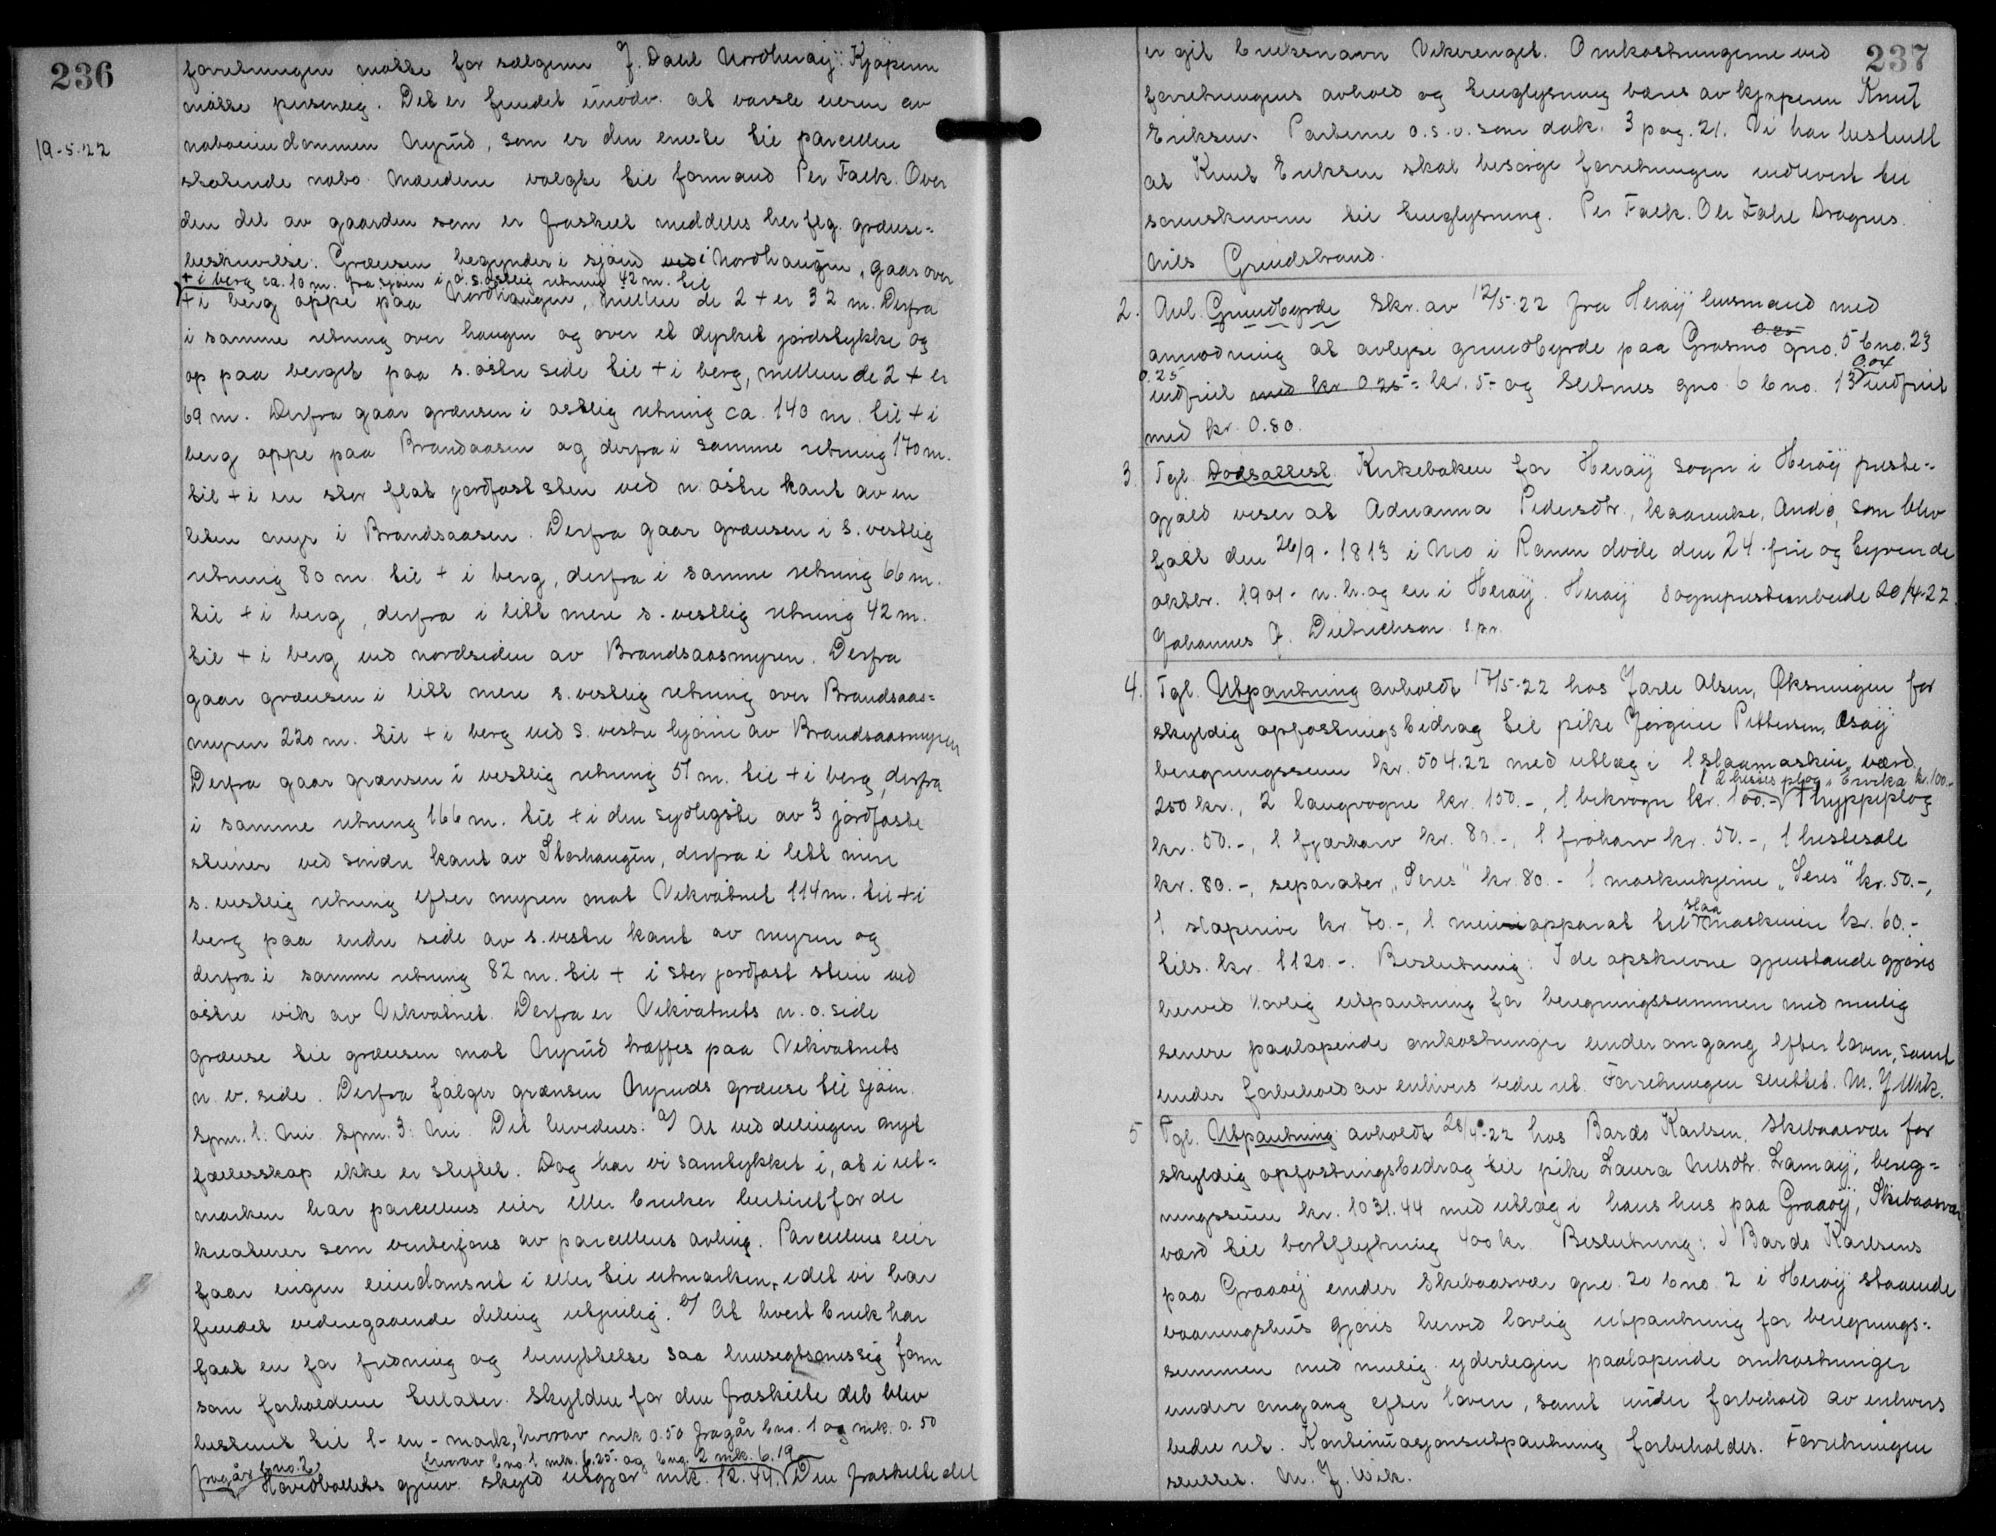 236
19-5-22
forretningen møtte for sælgeren J. Dahl Nordherøy: Kjøperen
møtte personlig. Det er fundet unødv. at varsle eieren av
naboeiendommen Nyrud, som er den eneste til parcellen
støtende nabo. Mændene valgte til formand Per Falk. Over
den del av gaarden som er fraskilt meddeles her flg. grænse-
beskrivelse: Grænsen begynder i sjøen ved i Nordhaugen, gaar over
+ i berg ca. 10 m. fra sjøen i o.s.østlig retning 42 m. til
+ i berg oppe paa Nordhaugen, mellem de 2 + er 32 m. Derfra
i samme retning over haugen og over et dyrket jordstykke og
op paa berget paa s. østre side til + i berg, mellem de 2 + er
69 m. Derfra gaar grænsen i østlig retning ca. 140 m. til + i
berg oppe paa Brandsaasen og derfra i samme retning 170 m.
til + i en stor flat jordfast sten ved n. østre kant av en
liten myr i Brandsaasen. Derfra gaar grænsen i s. vestlig
retning 80 m. til + i berg, derfra i samme retning 66 m.
til + i berg, derfra i litt mere s. vestlig retning 42 m.
til + i berg ved nordsiden av Brandsaasmyren. Derfra
gaar grænsen i litt mere s. vestlig retning over Brandsaas-
myren 220 m. til + i berg ved s. vestre hjørne av Brandsaasmyren
Derfra gaar grænsen i vestlig retning 51 m. til + i berg, derfra
i samme retning 166 m. til + i den sydligste av 3 jordfaste
stener ved søndre kant av Storhaugen, derfra i litt mere
s. vestlig retning efter myren mot Vikvatnet 114 m. til + i
berg paa endre side av s. vestre kant av myren og
derfra i samme retning 82 m. til + i stor jordfast sten ved
østre vik av Vikvatnet. Derfra er Vikvatnets n. o. side
grænse til grænsen mot Nyrud træffes paa Vikvatnets
n. v. side. Derfra følger grænsen Nyruds grænse til sjøen.
Spm. 1: Nei. Spm. 3: Nei. Det bevidnes: a) At ved delingen nyt
fællesskap ikke er stiftet. Dog har vi samtykket i, at i ut-
marken har parcellens eier eller bruker beiteret for de
kreaturer som vinterfores av parcellens avling. Parcellens eier
faar ingen eiendomsret i eller til utmarken, idet vi har
fundet vedregaaende deling utjenlig. b) At hvert bruk har
faat en for fredning og benyttelse saa hensegtsmessig form
som forholdene tillater. Skylden for den fraskilte del blev
bestemt til 1 - en - mark, hvorav mk 0.50 fragår bno. 1 og mk. 0.50
fragår bno. 2, hvorav bno. 1 mk. 6.25 og bno. 2 mk. 6.19
Hovedbølets gjenv. skyld utgjør mk. 12.44. Den fraskilte del
237
er git bruksnavn Vikerenget. Omkostningerne ved
forretningens avhold og tinglysning bæres av kjøperen Knut
Eriksen. Partene o.s.v. som dok. 3 pag. 21. Vi har bestemt
at Knut Eriksen skal besørge forretningen indlevert til
sorenskriveren til tinglysning. Per Falk. Ole Zahl Dragnes.
Nils Grindstrand.
2. Avl. Grundbyrde Skr. av 12/5-22 fra Herøy lensmand med
anmodning at avlyse grundbyrde paa Grasmo gno. 5 bno. 23
0.25
indfriet med kr 0.25 = kr. 5.- og Leitnes gno. 6 bno. 13 0.04 indfriet
med kr. 0.80.
3. Tgl. Dødsattest. Kirkeboken for Herøy sogn i Herøy preste-
gjeld viser at Adrianna Pedersdtr., kaarenke, Andø, som blev
født den 26/9-1813 i Mo i Ranen døde den 24 fire og tyvende
oktbr. 1901 - n.h. og en i Herøy. Herøy sogneprestembede 20/4-22.
Johannes A. Dietrichson. s.pr.
4. Tgl. Utpantning avholdt 17/5-22 hos Jarle Olsen, Øksningen for
skyldig opfostringsbidrag til pike Jørgine Pettersen, Osøy
beregningssum kr. 504.22 med utlæg i 1 slaamaskin, værd
1 2 hestes plog "Ervika" kr. 100.-
250 kr., 2 langvogne kr. 150.-, 1 bekvogn kr. 100.- 1 hyppeplog
kr. 50.-, 1 fjærharv kr. 80.-, 1 frøharv kr. 50.-, 1 hestesæle
kr. 80.-, separater "Seres" kr. 80.- 1 maskinkjerne "Seres" kr. 50.-,
1 slaperive kr. 70.-, 1 meieapparat til slaamaskinen kr. 60.-
tils. kr. 1120.-. Beslutning: I de opskrevne gjenstande gjøres
herved lovlig utpantning for beregningssummen med mulig
senere paaløpende omkostninger under omgang efter loven, samt
under forbehold av enhvers bedre ret. Forretningen sluttet. M. J. Wik.
5 Tgl. Utpantning avholdt 28/4-22 hos Bardo Karlsen, Skibaasvær for
skyldig opfostringsbidrag til pike Laura Nilsdtr. Lamøy, bereg-
ningssum kr. 1031.44 med utlæg i hans hus paa Graaøy, Skibaasvær
værd til bortflytning 400 kr. Beslutning: I Bardo Karlsens
paa Graaøy under Skibaasvær gno. 20 bno. 2 i Herøy staaende
vaaningshus gjøres herved lovlig utpantning for beregnings-
summen med mulig yderligere paaløpende omkostninger
under omgang efter loven, samt under forbehold av enhvers
bedre ret. Kontinuasjonsutpantning forbeholdes. Forretningen
sluttet. M. J. Wik.